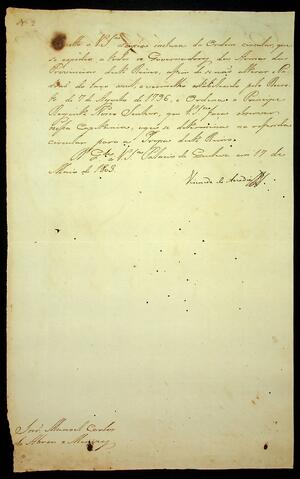 N. 2
a V. S.ª incluza da Ordem circular, que
se expedio a todos os Governadores das Armas das
Provincias deste Reino, afim de se não alterar o La
do laço azul, e vermelho estabelecido pelo Decre
to de 7 de Agosto de 1796, e Ordena o Principe
Regente Nosso Senhor, que V. S.ª faça observar
nessa Capitania, o que se determina na referida
circular para as Tropas deste Reino.
D.s G.e a V. S.ª Palacio de Queluz em 17 de
Maio de 1803.
Visconde de Anadia
Snr. Manoel Carlos
de Abreu e Menezes